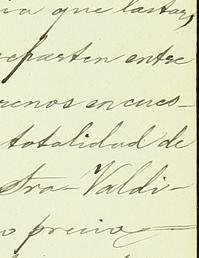 que lastar,
reparten entre
renos en cues-
totalidad de
stra- Valdi-
o precio